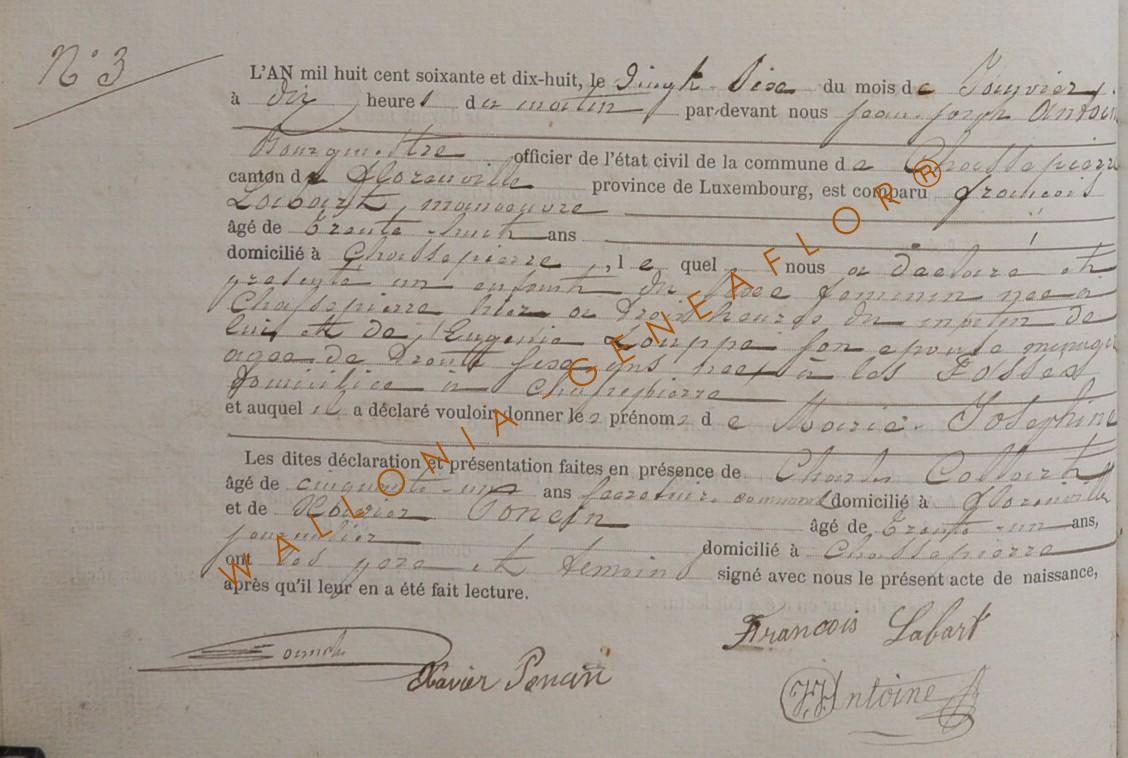 N° 3
L'AN mil huit cent soixante et dix-huit, le Vingt Sixe du mois de Janvier
à dix heures du matin par-devant nous Jean-Joseph Antoine
Bourgmestre officier de l'état civil de la commune de Chassepierre
canton de Florenville province de Luxembourg, est comparu François
Labart, manoeuvre
âgé de trente-huit ans
domicilié à Chassepierre, lequel nous a déclaré et
présenté un enfant du sexe féminin née à
Chassepierre hier a trois heures du matin de
lui et de Eugenie Louppe son épouse ménagère
agée de trente six ans née à les Fosses
domiciliée à Chassepierre
et auquel il a déclaré vouloir donner les prénoms de Marie-Josephine
Les dites déclaration et présentation faites en présence de Charles Collart
âgé de cinquante-un ans secrétaire communal domicilié à Florenville
et de Xavier Poncin âgé de trente-un ans,
journalier domicilié à Chassepierre
ont les père et témoins signé avec nous le présent acte de naissance,
après qu'il leur en a été fait lecture.
François Labart
Xavier Poncin
J.J. Antoine
WALLONIA GENEAFLOR®